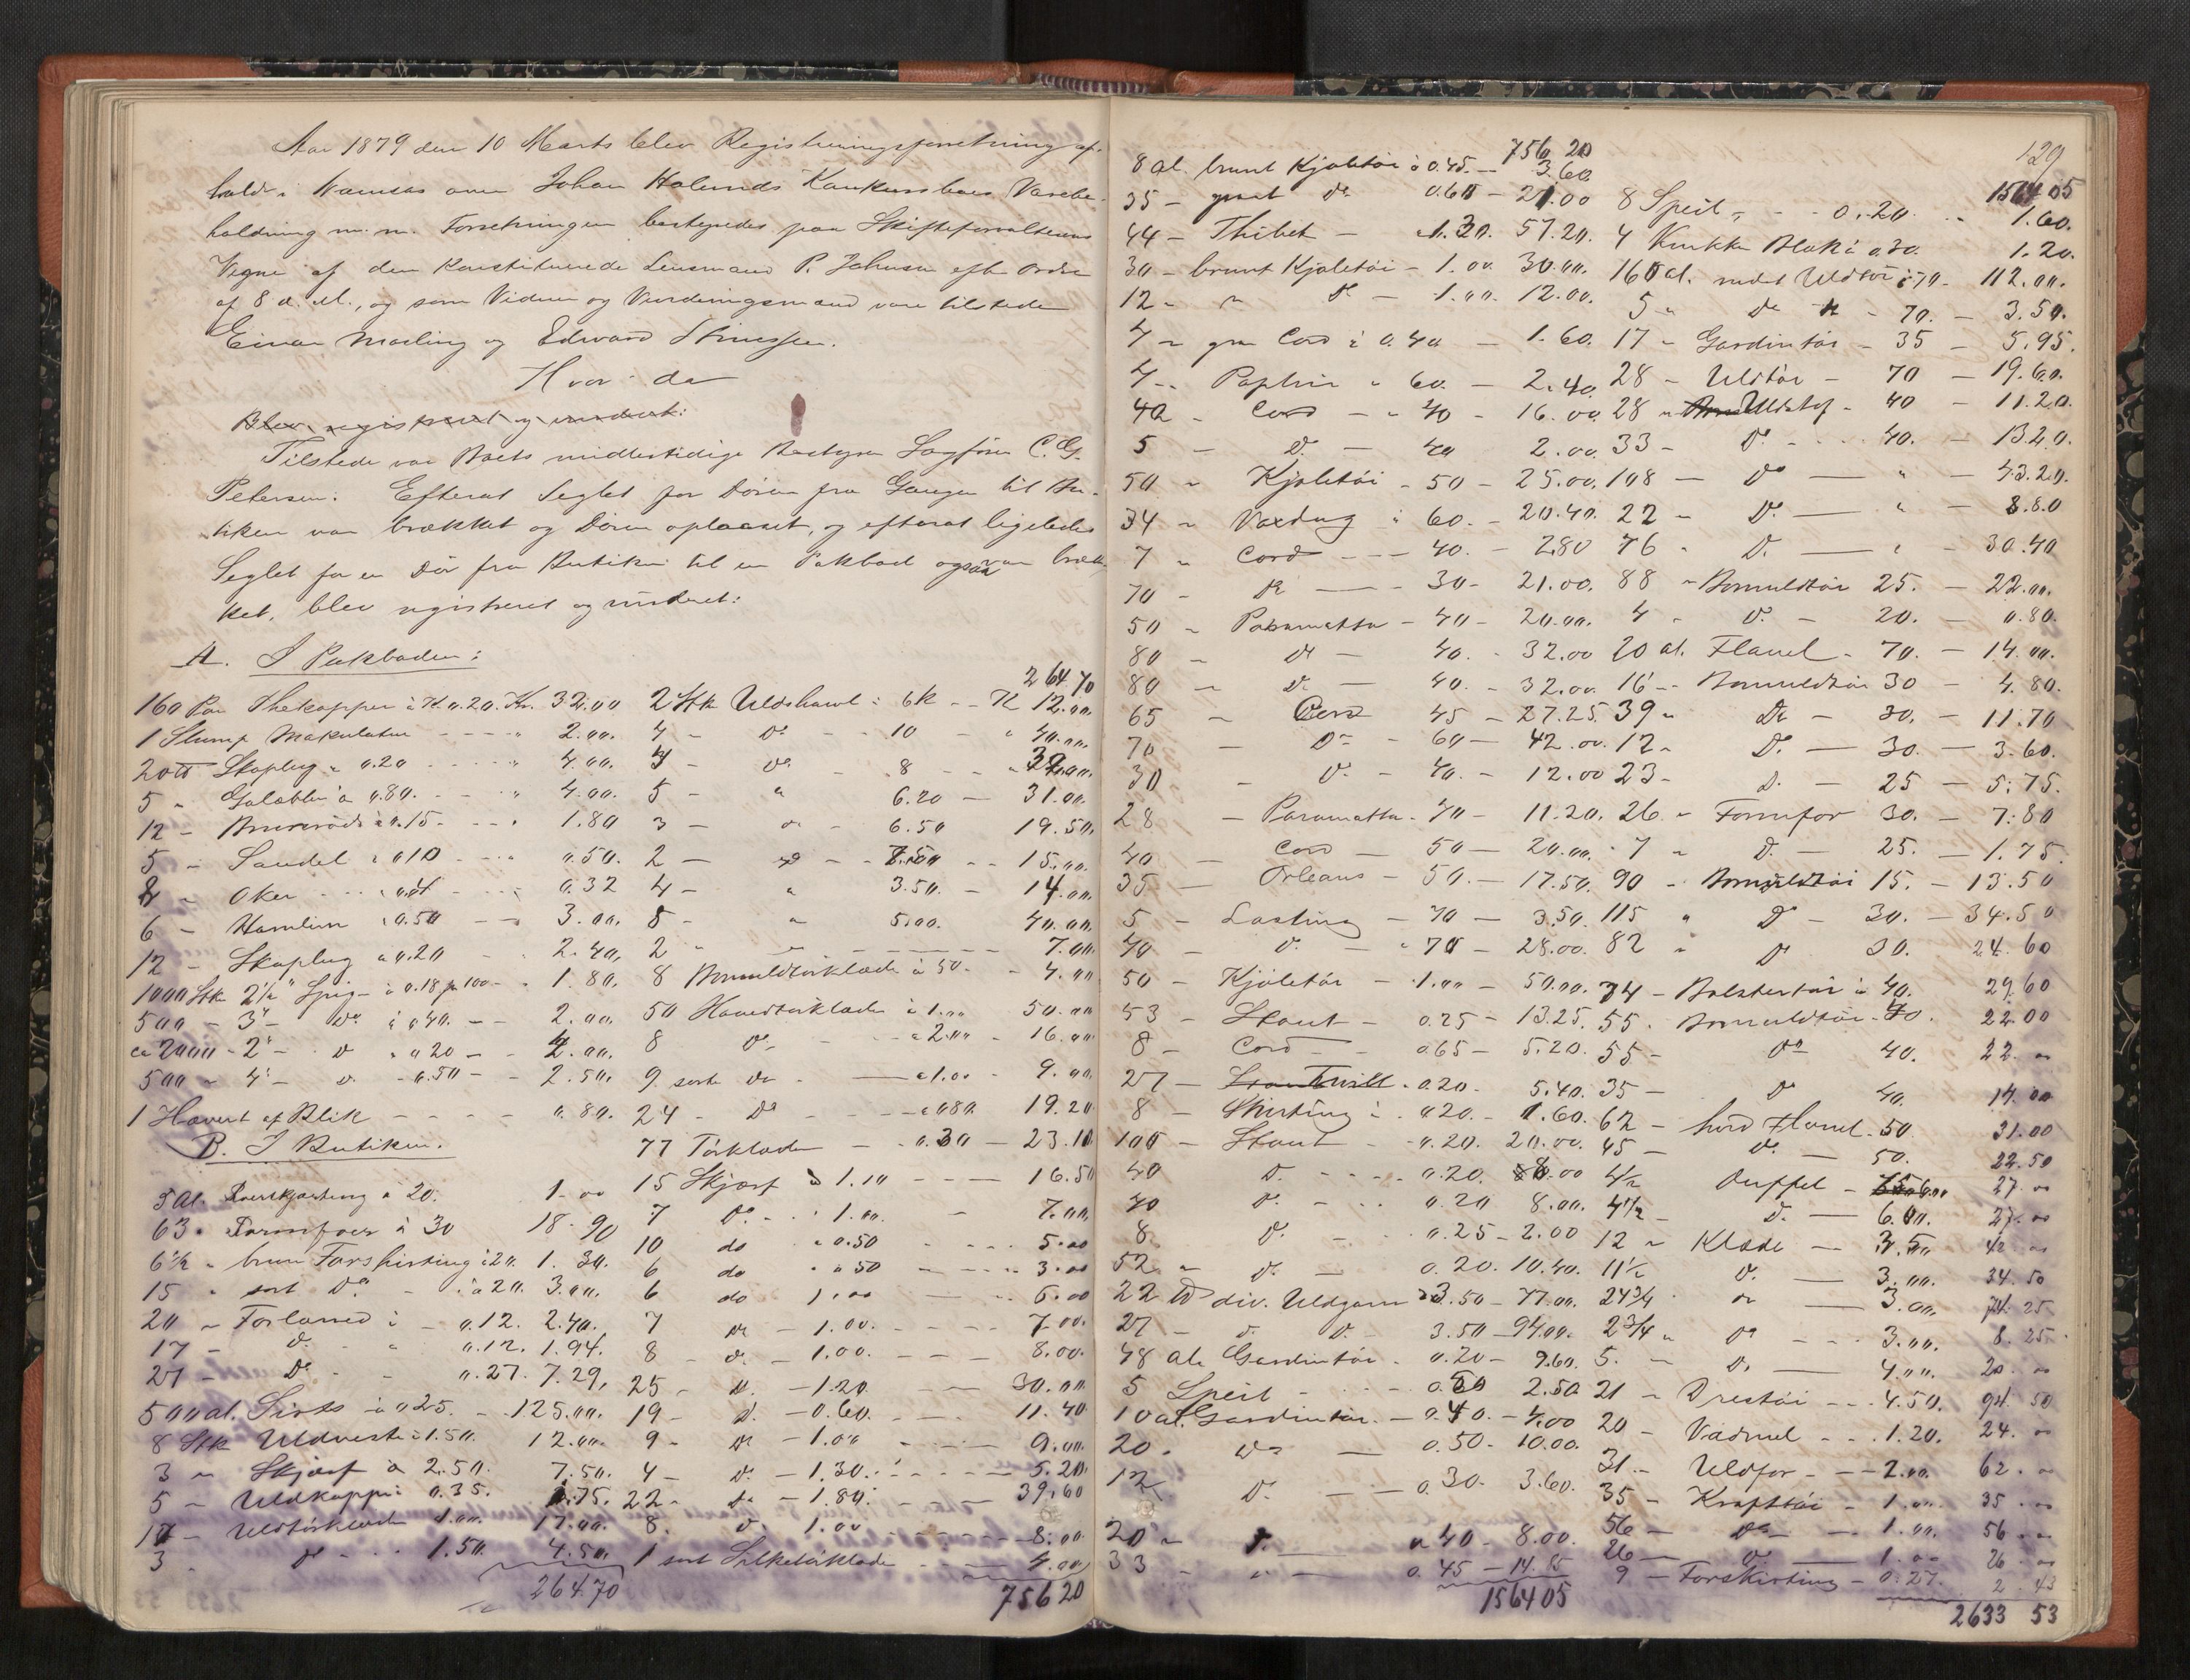 Aar 1879 den 10 Marts blev Registreringsforretning af-
holdt i Namsos over Johan Holunds Konkursboes Varebe-
holdning m. m. Forretningen bestyredes paa Skifteforvalterens
Vegne af den Konstituerede Lensmand P. Johnsen efter Ordre
af 8 d. M., og som Vidner og Vurderingsmænd vare tilstede
Einar Morling og Edvard
Hvor da
Blev registreret og vurderet:
Tilstede var Boets midlertidige Bestyrer Sagfører C. G.
Petersen. Efterat Seglet for Døren fra Gangen til Bu-
tiken var brækket og Døren oplaaset, og efterat ligeledes
Seglet for en Dør fra Butiken til en Pakbod ogsaa var bræk-
ket, blev registreret og vurderet:
A. I Pakboden:
160 Par Thekopper à Kr 0.20. Kr. 32.00
1 Slump Makulatur - - - " 2.00.
20 ℔ Skoplug " 0.20 - - - " 4.00.
5 " " 0.80. - - " 4.00.
12 - Brunrød à 0.15. - - 1.80
5 - Sandel " 0.10 - - 0.50.
8 " Oker - - " 0.04 - - 0.32
6 - " 0.50 - - 3.00.
12 - Skoplug " 0.20 - 2.40.
1000 Stk 2½" Spig - à 0.18 pr 100 - 1.80.
500 - 3" - Do à 0.40. - - 2.00.
ca 2000 - 2" - Do " 0.20 - - 4.00.
500 - 4" - Do - 0.50 - - 2.50.
1 Hævert af Blik - - - - 0.80.
B. I Butiken.
5 Al. à 20. 1.00
63 " Formfoer à 30 18.90
6½ " brun Forskirting à 20. 1.30.
15 " sort Do - à 20. 3.00.
20 " Forlærred à - 0.12. 2.40.
17 - Do " 0.12. 1.94.
27 - Do - - 0.27. 7.29.
500 al. Sirts à 0.25. - 125.00.
8 Stk Uldveste à 1.50. 12.00.
3 " Skjærf à 2.50. 7.50.
5 " Uldkapper 0.35. 1.75.
17 - Uldtørklæder 1.00. 17.00.
3 - Do - - 1.50. 4.50.
264.70
264.70
2 Stk Uldshawl à 6 K - - K 12.00.
4 - Do - - 10 - " 40.00.
4 - Do - 8 - - " 32.00.
5 - " 6.20 - 31.00.
3 - " - 6.50 19.50.
2 - Do - - 7.50 - - 15.00.
4 - " 3.50. - 14.00
8 - " 5.00. 40.00.
2 " - - - - - 7.00.
8 Bomuldtørklæde à 50. - 4.00
50 Hovedtørklæder à 1.00 50.00
8 Do - - à 2.00 - 16.00
9 sorte Do - à 1.00 - 9.00.
24 - Do - - à 0.80. 19.20
77 Tørklæder - - 0.30 - 23.10
15 Skjærf à 1.10 - - - 16.50
7 Do - - 1.00. - 7.00.
10 do " 0.50 - - - 5.00
6 do " 0.50 - - - 3.00
6 do 1.00 - - - 6.00
7 Do - 1.00. - - - 7.00.
8 - Do - 1.00. - - - 8.00.
25 - Do - 1.20 - - - 30.00.
19 - Do - 0.60. - - - 11.40
9 - Do - 1.00 - - - 9.00.
4 - Do - 1.30. - - - 5.20.
22 - Do - 1.80. - - - 39.60
8. Do 1.00 - - - 8.00
1 sort Silketørklæde - - 4.00
756 20
129
756 20
8 al. brunt Kjoletøi à 0.45. - 3.60.
35 - graat Do 0.60 - 21.00
44 - Thibet - à 1.30. 57.20.
30 - brunt Kjoletøi - 1.00. 30.00.
12 - " Do - 1.00. 12.00.
4 " Cord à 0.40 - 1.60.
4 - Poplin " 60. - 2.40.
40 - Cord - " 40 - 16.00
5 - Do - 40 2.00.
50 " Kjoletøi - 50 - 25.00.
34 " Voxdug à 60. - 20.40.
7 " Cord - - - 40. - 2.80
70 - Do - - 30 - 21.00.
50 " Paramatta - 40 - 20.00.
80 - Do - 40. - 32.00
80 - Do - 40. - 32.00.
65 - Cord 45 - 27.25.
70 - Do - 60 - 42.00.
30 - Do - 40. - 12.00
28 - Paramatta - 40 - 11.20.
40 - Cord - 50 - 20.00.
35 - Orleans - 50. - 17.50.
5 - Lasting - 70 - 3.50.
40 - Do - " 70 - 28.00.
50 - Kjoletøi - 1.00 - 50.00.
53 - Stout - 0.25 - 13.25.
8 - Cord - - 0.65 - 5.20.
27 - Twill - 0.20. 5.40.
8 - Skirting à 0.20. - 1.60.
100 - Stout - - 0.20. 20.00.
40 Do - - - 0.20. 8.00
40 Do - - - 0.20 8.00.
8 Do - - 0.25 - 2.00
52 " Do - 0.20. 10.40.
22 ℔ div. Uldgarn à 3.50 - 77.00.
27 - Do Do - 3.50 - 94.00.
48 al. Gardintøi - 0.20 - 9.60.
5 Speil - - - 0.50 2.50
10 al. Gardintøi. - 0.40. - 4.00
20 - Do - 0.50 - 10.00.
12 Do - - 0.30. 3.60.
20 - Do - 0.40 - 8.00.
33 - " - 0.45 - 14.85
1564 05
1564 05
8 Speil " - - 0.20. - 1.60.
4 Krukke Blæk à 0.30. 1.20.
160 al. rødt Uldtøi à 70 - 112.00.
5 " Do - 70. - 3.50.
17 - Gardintøi - 35 - 5.95.
28 - Uldtøi - 70 - 19.60.
28 " Uldstof - 40 - 11.20.
33 - Do - - - 40. - 13.20.
108 - Do - " - 43.20.
22 - Do - " - 8.80
76 - Do - " - 30.40
88 - Bomuldtøi 25. - 22.00.
4 - Do - 20. - 0.80.
20 al. Flanel - 70. - 14.00.
16 - - Bomuldtøi 30 - 4.80.
39 " Do - 30. - 11.70
12 " Do - 30. - 3.60.
23 - Do - 25 - 5.75.
26 - Formfor 30. - 7.80
7 " Do - 25. - 1.75.
90 - Bomuldtøi 15. - 13.50
115 " Do - 30. - 34.50
82 " Do 30. 24.60
74 - Bolstertøi à 40. 29.60
55 - Bomuldtøi - 40. 22.00
55 - Do 40. 22.00
35 - Do 40. 14.00
62 - hvid Flanel - 50. 31.00
45 - Do - 50. 22.50
4½ Duffel - 6.00 27.00
4½ - Do - 6.00. 27.00
12 " Klæde - 3.50 42.00
11½ Do - 3.00. 34.50
24¾ Do - 3.00. 74.25
2¾ " Do - - - 3.00. 8.25
5. - Do - 4.00. 20.00
21 - Drestøi - - - 4.50. 94.50
20 - Vadmel - - - 1.20. 24.00
31 - Uldfor - - - 2.00. 62.00
35 - Krafttøi - 1.00. 35.00
56 - Do - - 1.00. 56.00
26 - Do - 1.00 26.00
9 - Forskirting - 0.27. 2.43
2633 53